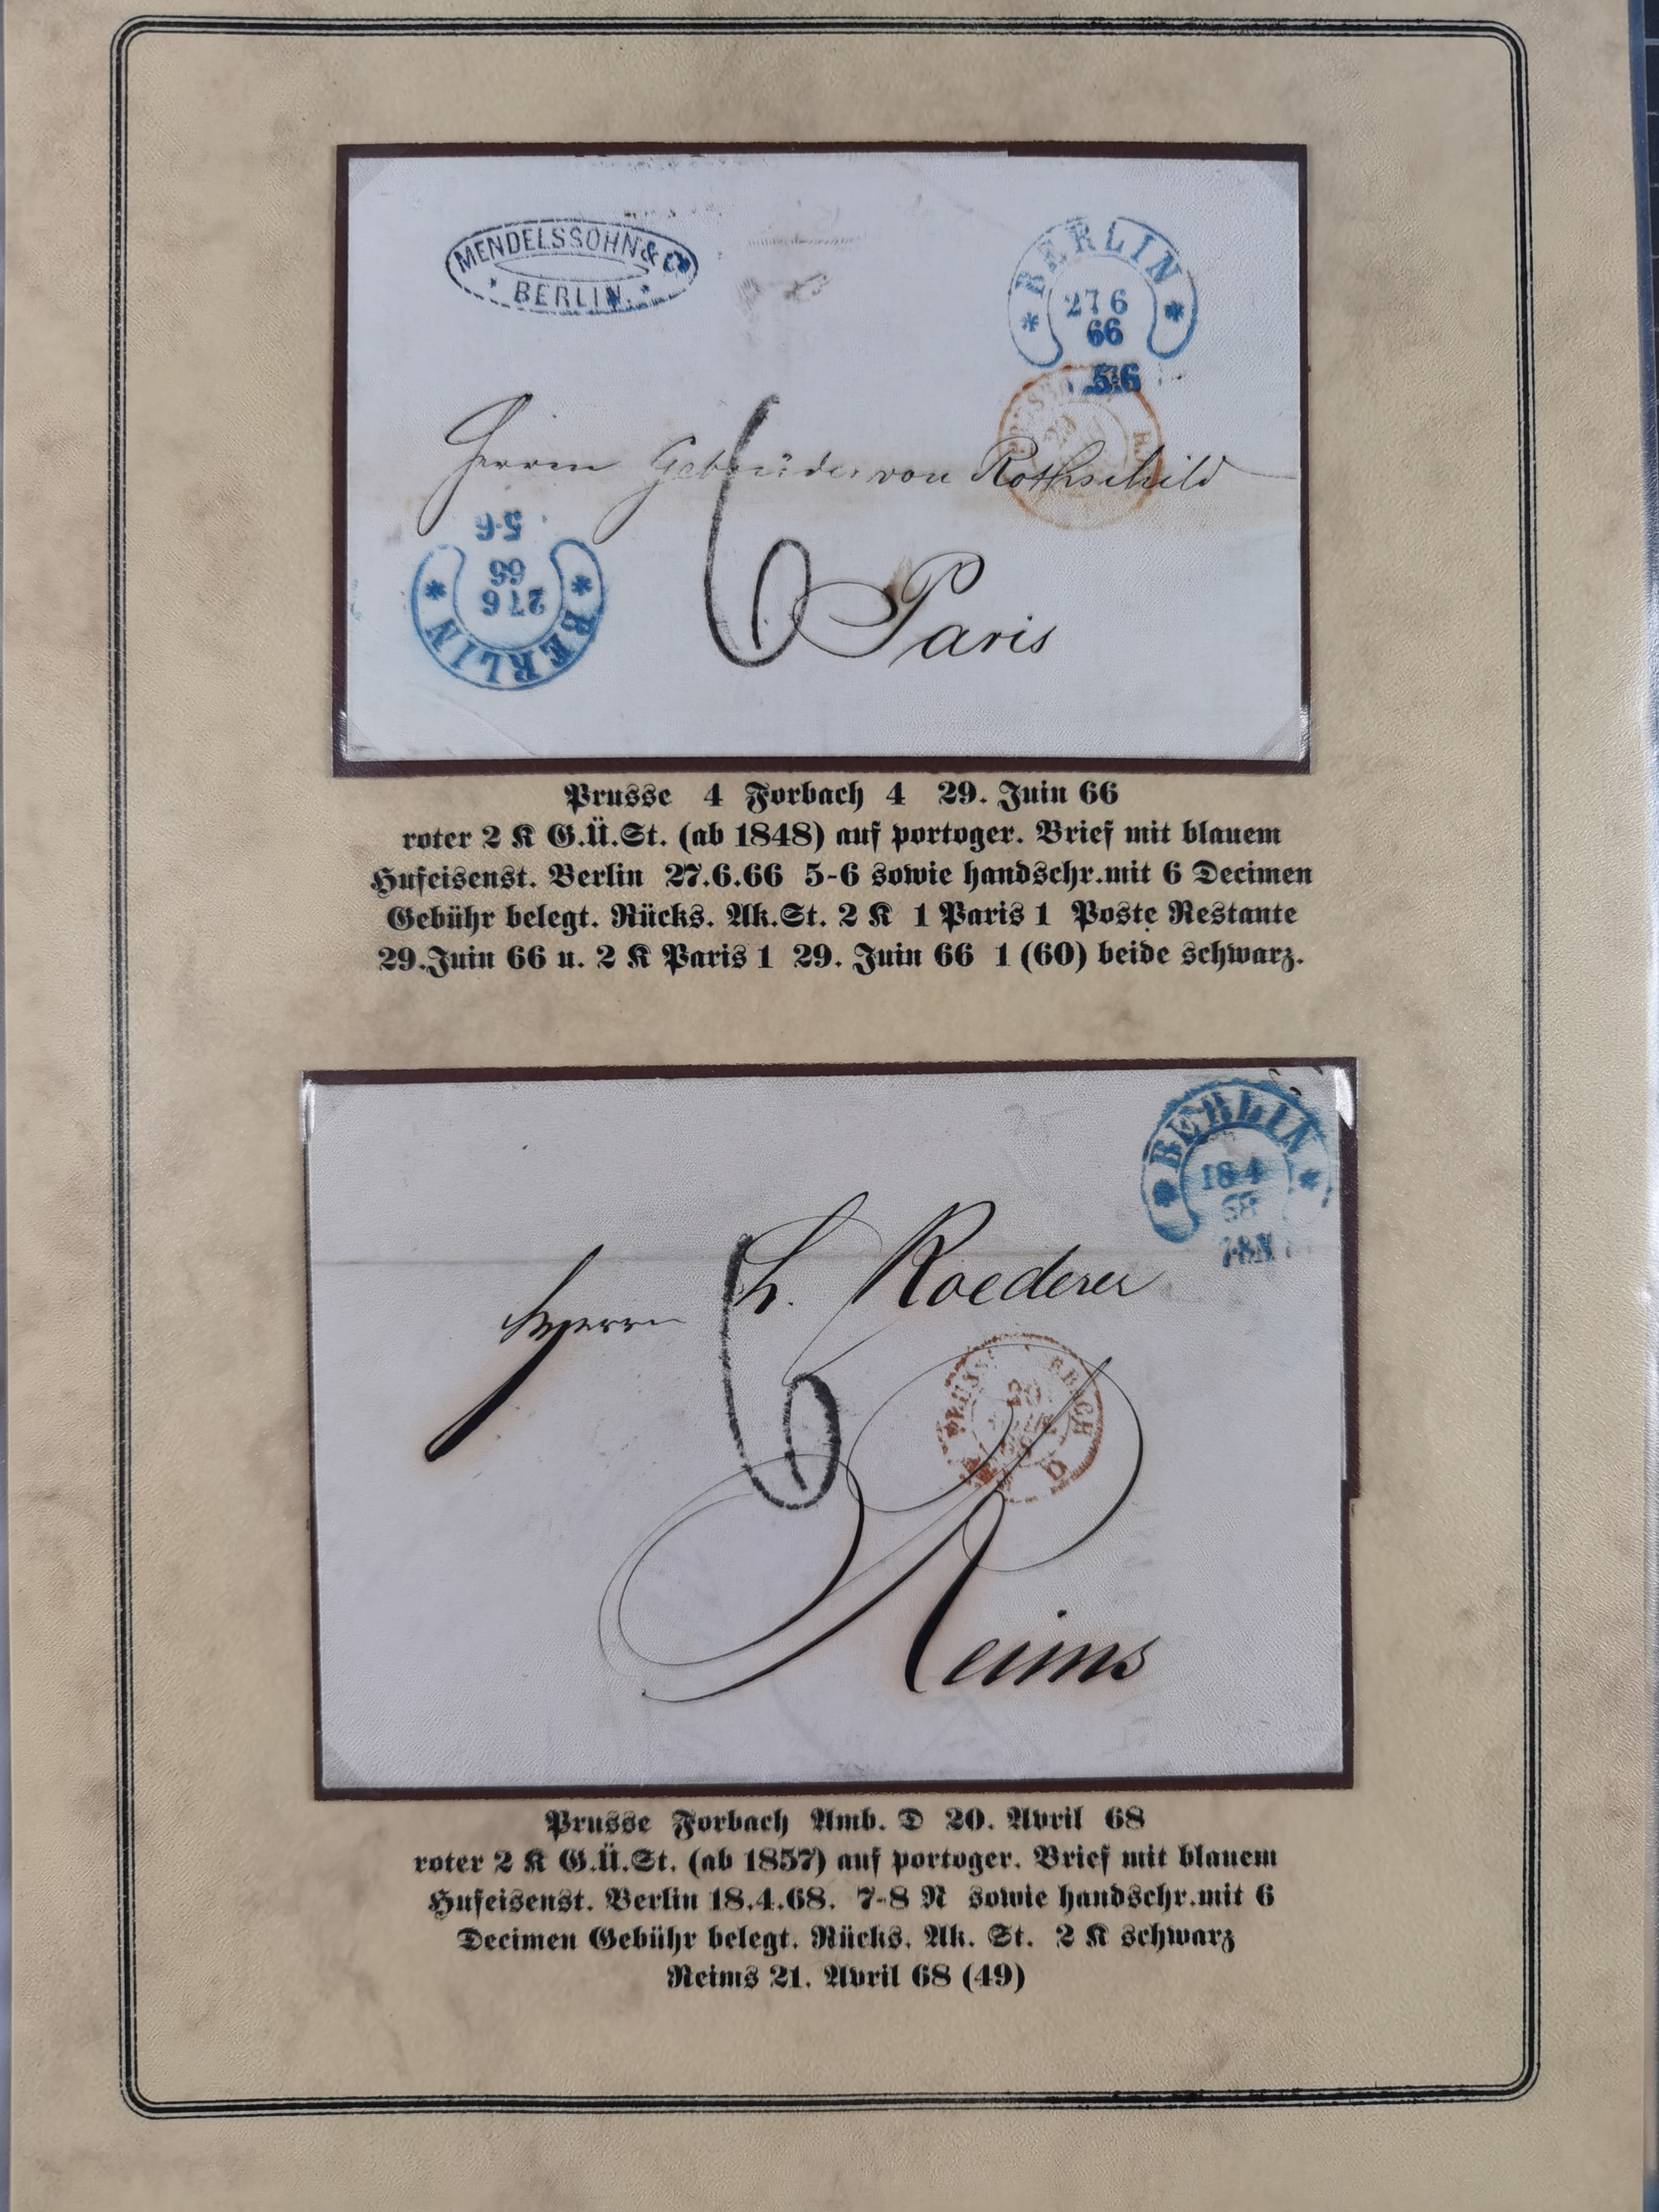 MENDELSSOHN & Co
* BERLIN. *
* BERLIN *
27 6
66
5-6
Herrn Gebrüder von Rothschild
6
Paris
* BERLIN *
27 6
66
5-6
Prusse 4 Forbach 4 29. Juin 66
roter 2 K G.Ü.St. (ab 1848) auf portoger. Brief mit blauem
Hufeisenst. Berlin 27.6.66 5-6 sowie handschr.mit 6 Decimen
Gebühr belegt. Rücks. Ak.St. 2 K 1 Paris 1 Poste Restante
29.Juin 66 u. 2 K Paris 1 29. Juin 66 1 (60) beide schwarz.
* BERLIN *
18 4
68
7-8 N
Herrn L. Roederer
6
20
D
Reims
Prusse Forbach Amb. D 20. Avril 68
roter 2 K G.Ü.St. (ab 1857) auf portoger. Brief mit blauem
Hufeisenst. Berlin 18.4.68. 7-8 N sowie handschr.mit 6
Decimen Gebühr belegt. Rücks. Ak. St. 2 K schwarz
Reims 21. Avril 68 (49)